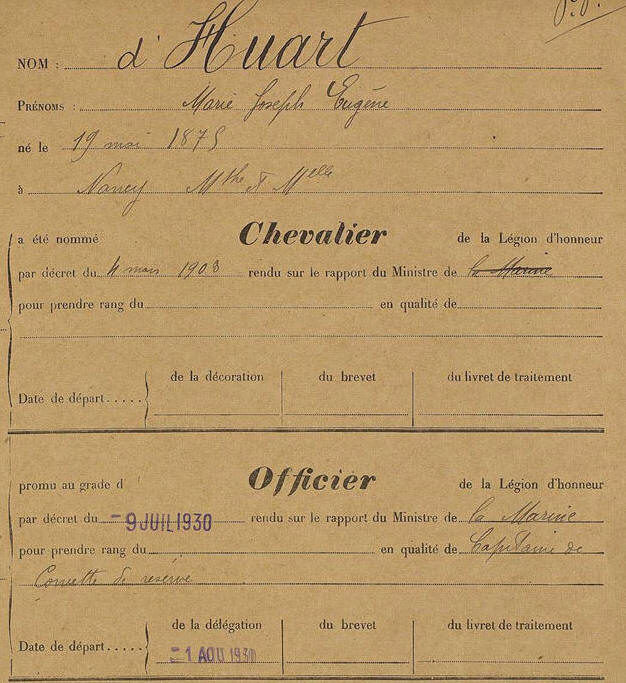 NOM : d' Huart
PRÉNOMS : Marie Joseph Eugène
né le 19 mai 1875
à Nancy Mthe & Mlle
a été nommé Chevalier de la Légion d'honneur
par décret du 4 mars 1903 rendu sur le rapport du Ministre de la Marine
pour prendre rang du en qualité de
de la décoration du brevet du livret de traitement
Date de départ.....
promu au grade d Officier de la Légion d'honneur
par décret du -9 JUIL 1930 rendu sur le rapport du Ministre de la Marine
pour prendre rang du en qualité de Capitaine de
Corvette de réserve
de la délégation du brevet du livret de traitement
Date de départ..... -1 AOU 1930